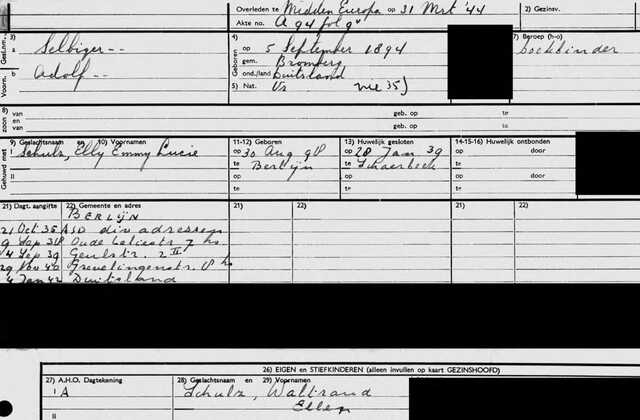 Overleden te Midden Europa op 31 Mrt '44 2) Gezinsv.
Akte no. A 94 fol 9v
Gesl.nm. 3) a Selbiger -- 4) op 5 September 1894 7) Beroep (h-o)
Geboren gem. Bromberg boekbinder
Voorn. b Adolf -- ond./land Duitsland
5) Nat. Vs nie 35)
zoon 8) van geb. op te
en van geb. op te
Gehuwd met 9) Geslachtsnaam en 10) Voornamen 11-12) Geboren 13) Huwelijk gesloten 14-15-16) Huwelijk ontbonden
I Schulz, Elly Emmy Lucie op 30 Aug 98 op 28 Jan 39 op door
te Berlijn te Schaerbeek te
II op op op door
te te te
21) Dagt. aangifte 22) Gemeente en adres 21) 22) 21) 22)
BERLIJN
21 Oct 35 ASD div adressen
9 Sep 38 Oude 7 hs
4 Sep 39 Geulstr. 2 II
29 Nov 40 Grevelingenstr. 8 hs
4 Jan 42 Duitsland
26) EIGEN en STIEFKINDEREN (alleen invullen op kaart GEZINSHOOFD)
27) A.H.O. Dagtekening 28) Geslachtsnaam en 29) Voornamen
I A Schulz, Waltrand
II Ellen